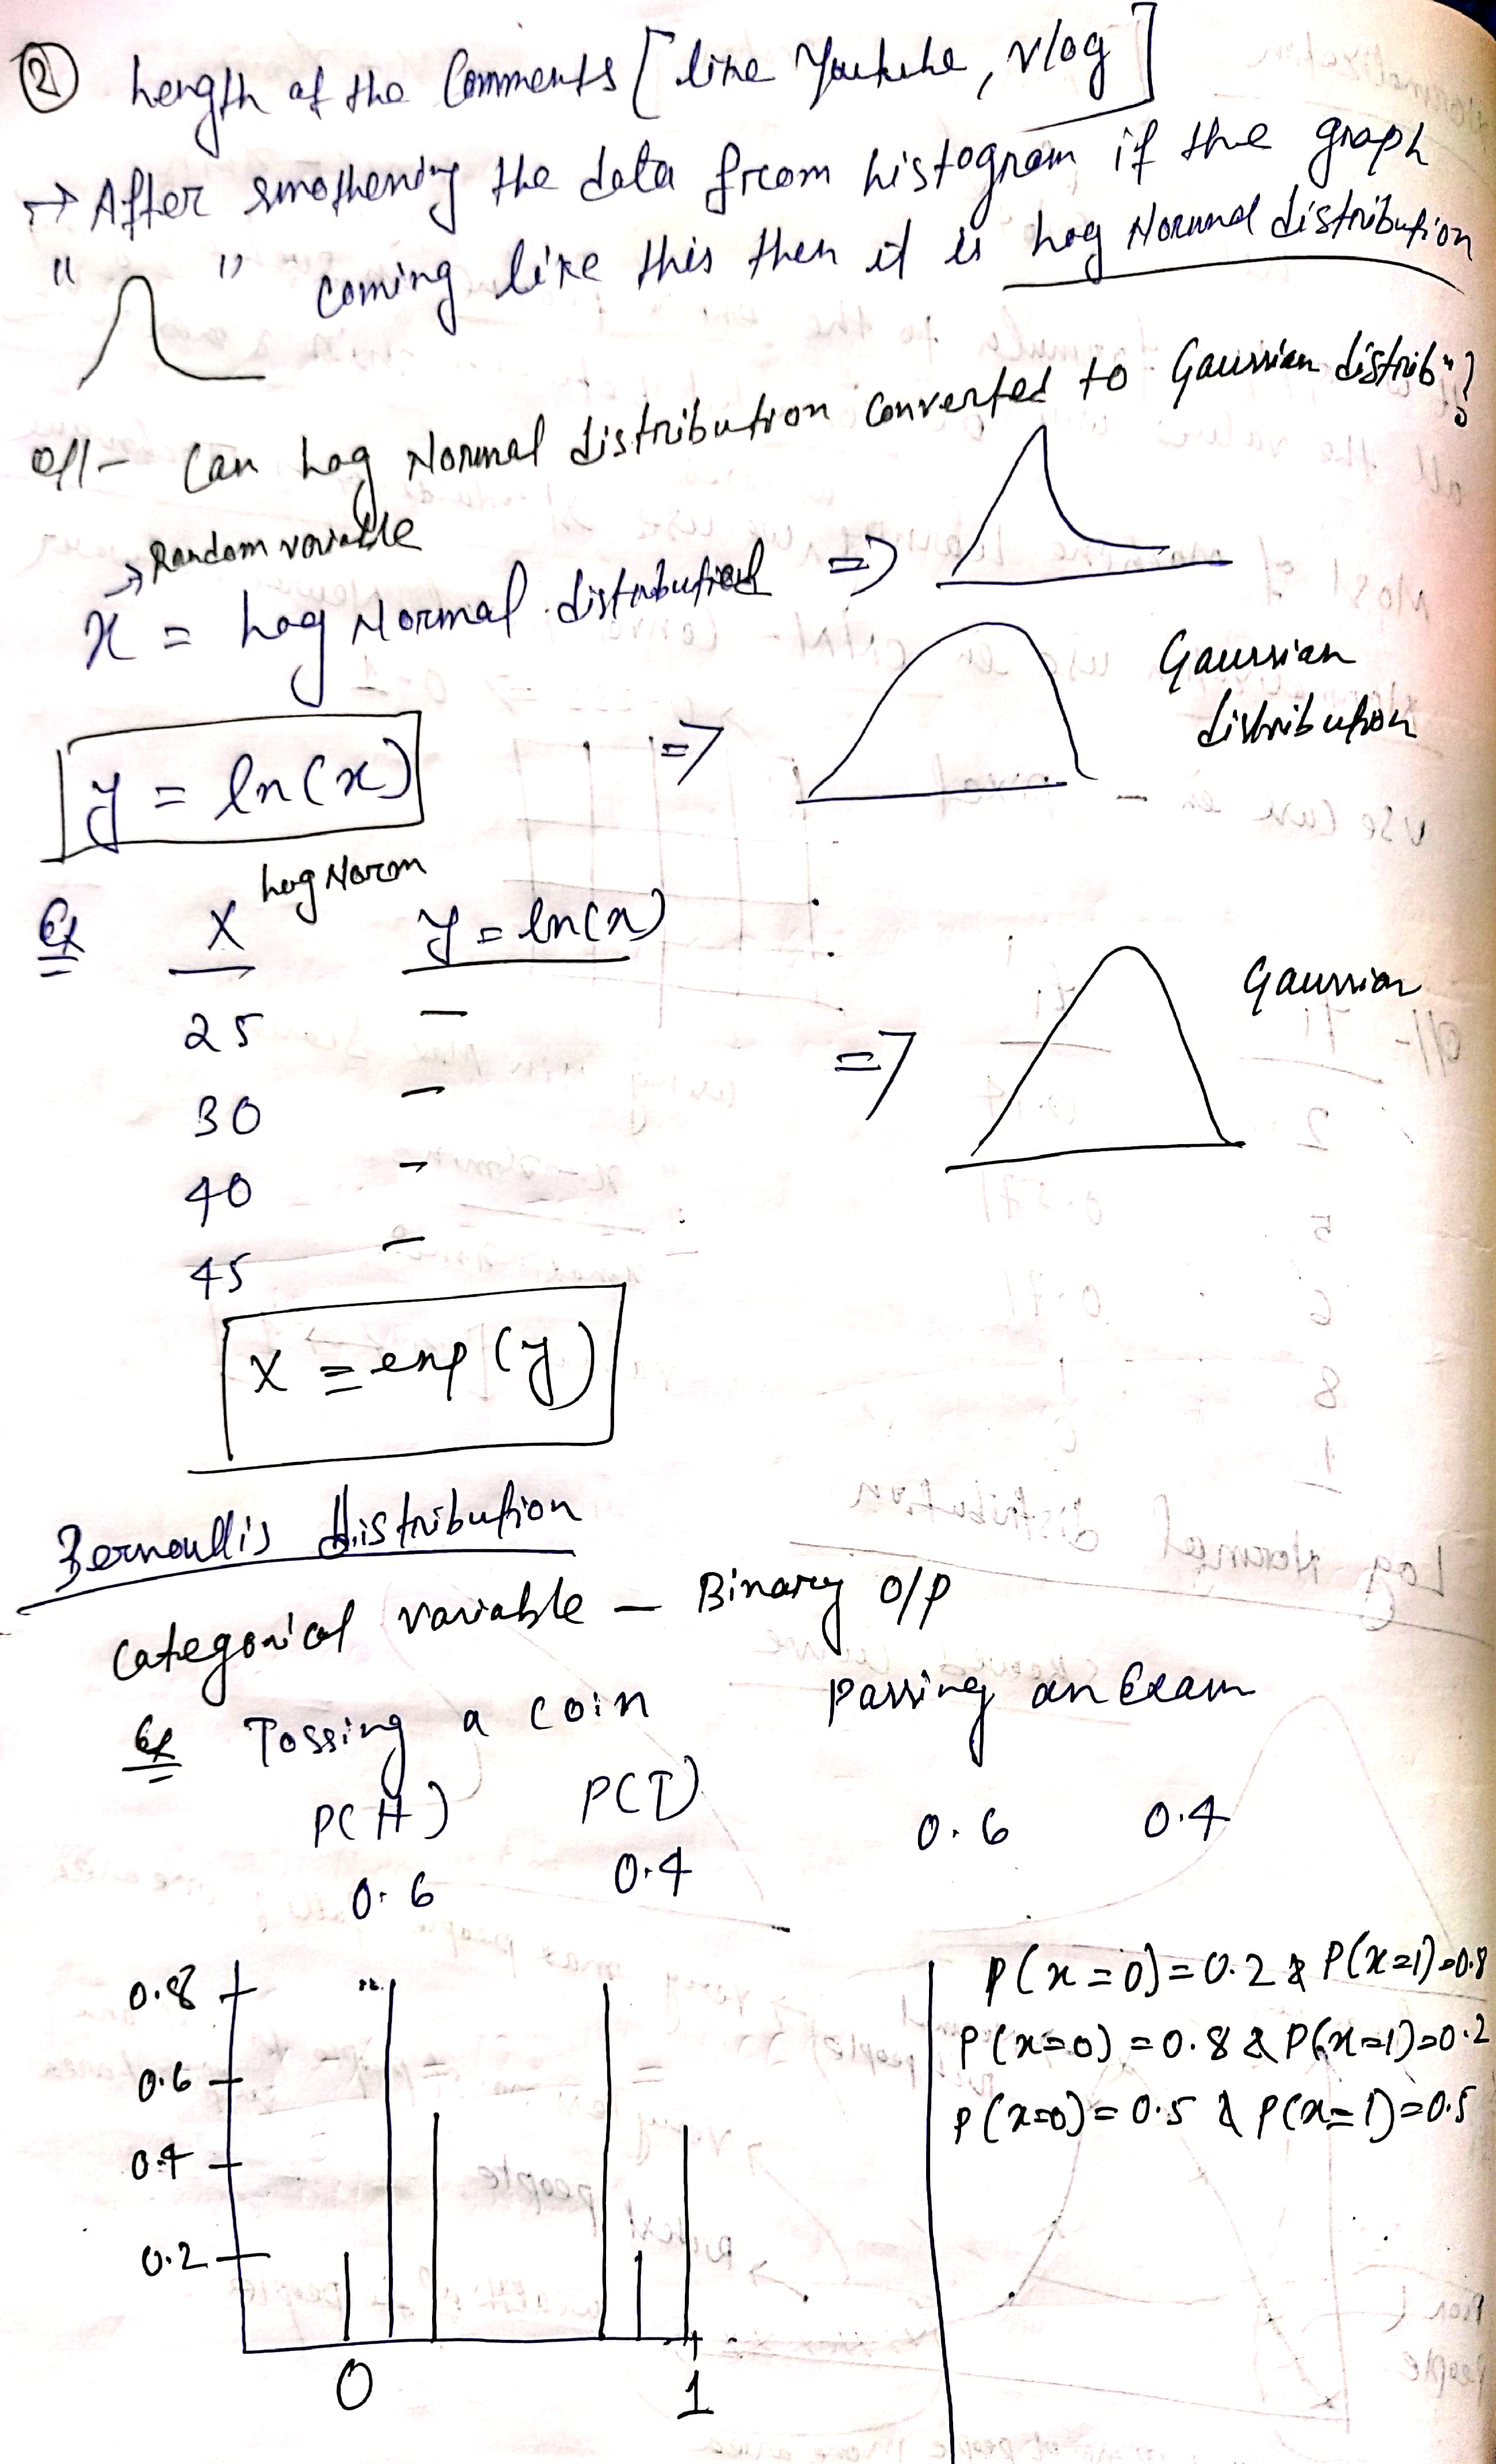 ② Length of the Comments [like Youtube, vlog]
→ After smothening the data from histogram if the graph
" " coming like this then it is Log Normal distribution
Q//- Can Log Normal distribution converted to Gaussian distribⁿ?
→ Random variable
x = Log Normal distribution =>
y = ln(x) => Gaussian distribution
Log Norm
Ex X y = ln(x)
25 -
30 - => Gaussian
40 -
45 -
X = exp(y)
Bernoullis distribution
Categorical variable - Binary o/p
Ex Tossing a coin Passing an Exam
P(H) P(T)
0.6 0.4 0.6 0.4
P(x=0)=0.2 & P(x=1)=0.8
P(x=0)=0.8 & P(x=1)=0.2
P(x=0)=0.5 & P(x=1)=0.5
0.8
0.6
0.4
0.2
0 1